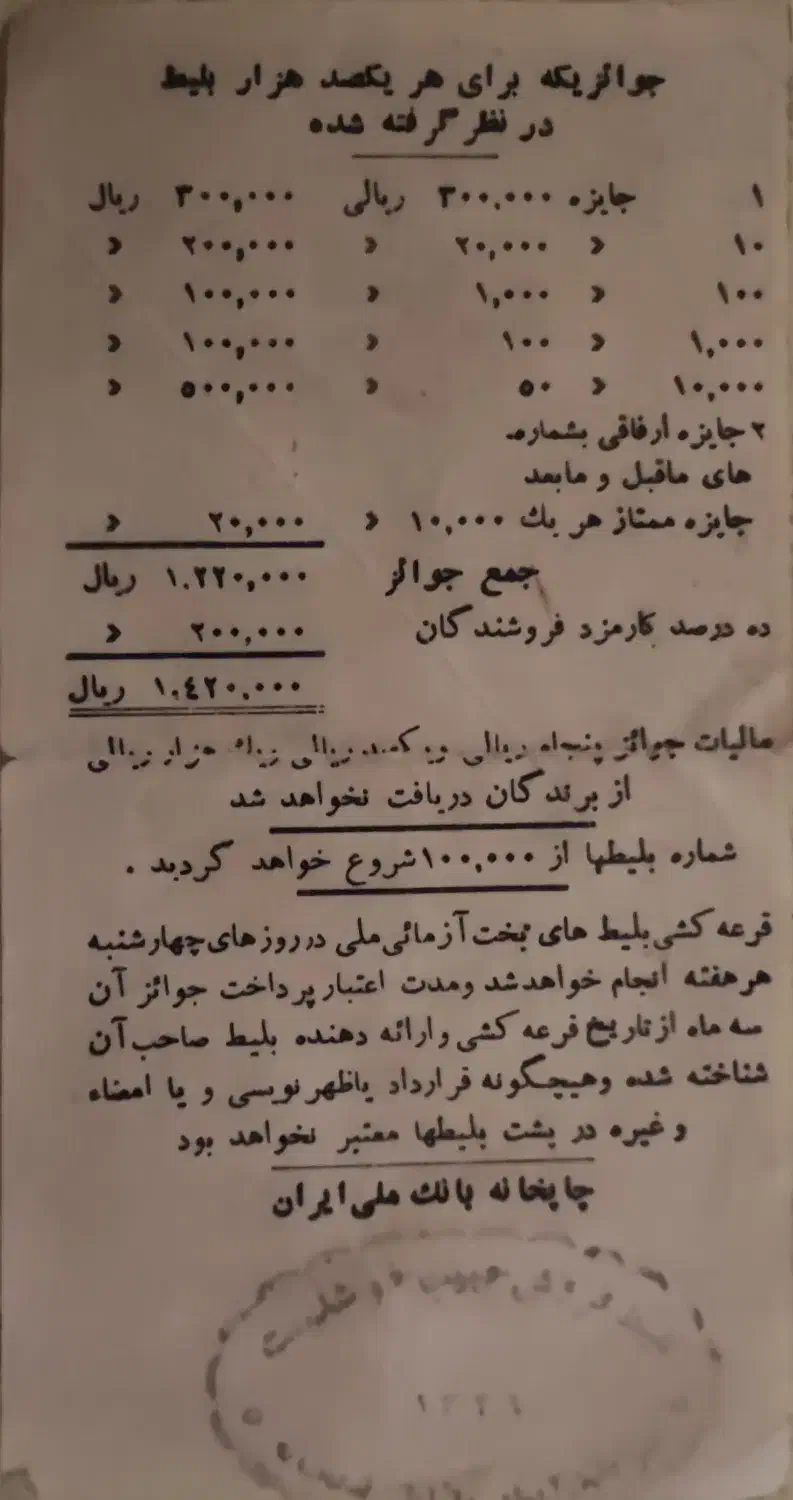 جوائزیکه برای هر یکصد هزار بلیط
در نظر گرفته شده
۱ جایزه ۳۰۰,۰۰۰ ریالی ۳۰۰,۰۰۰ ریال
۱۰ » ۲۰,۰۰۰ » ۲۰۰,۰۰۰ »
۱۰۰ » ۱,۰۰۰ » ۱۰۰,۰۰۰ »
۱,۰۰۰ » ۱۰۰ » ۱۰۰,۰۰۰ »
۱۰,۰۰۰ » ۵۰ » ۵۰۰,۰۰۰ »
۲ جایزه ارفاقی بشماره
های ماقبل و مابعد
جایزه ممتاز هر یك ۱۰,۰۰۰ » ۲۰,۰۰۰ »
جمع جوائز ۱.۲۲۰,۰۰۰ ریال
ده درصد کارمزد فروشندگان ۲۰۰,۰۰۰ »
۱.٤۲۰.۰۰۰ ریال
مالیات جوائز پنجاه ریالی ویکصد ریالی ویك هزار ریالی
از برندگان دریافت نخواهد شد
شماره بلیطها از ۱۰۰,۰۰۰ شروع خواهد گردید .
قرعه کشی بلیط های بخت آزمائی ملی در روزهای چهارشنبه
هر هفته انجام خواهد شد ومدت اعتبار پرداخت جوائز آن
سه ماه از تاریخ قرعه کشی و ارائه دهنده بلیط صاحب آن
شناخته شده وهیچگونه قرارداد یاظهر نویسی و یا امضاء
و غیره در پشت بلیطها معتبر نخواهد بود
چاپخانه بانك ملی ایران